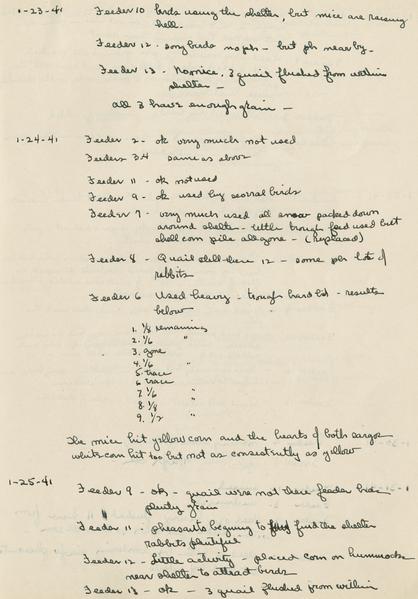 1-23-41 Feeder 10 birds using the shelter, but mice are raising
hell.
Feeder 12 - song birds no ph - but ph nearby -
Feeder 13 - No mice, 3 quail flushed from within
shelter -
all 3 have enough grain -
1-24-41 Feeder 2 - ok very much not used
Feeders 3+4 same as above
Feeder 11 - ok not used
Feeder 9 - ok used by several birds
Feeder 7 - very much used all snow packed down
around shelter - little trough feed used but
shell corn pile all gone - (replaced)
Feeder 8 - Quail still there 12 - some ph lots of
rabbits
Feeder 6 Used heavy - trough hard hit - results
below
1. 1/8 remaining
2. 1/6 "
3. gone
4. 1/6 "
5. trace
6. trace
7. 1/6 "
8. 1/8 "
9. 1/2 "
The mice hit yellow corn and the hearts of both cargo
white corn hit too but not as consistently as yellow
1-25-41 Feeder 9 - ok - quail were not there feeder has
plenty grain
Feeder 11 - pheasants beginning to find the shelter
rabbits plentiful
Feeder 12 - Little activity - placed corn on hummocks
near shelter to attract birds
Feeder 13 - ok - 3 quail flushed from within